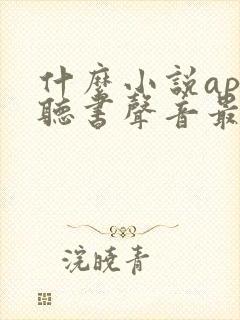 什麼小說ap
聽書聲音最
浣曉青